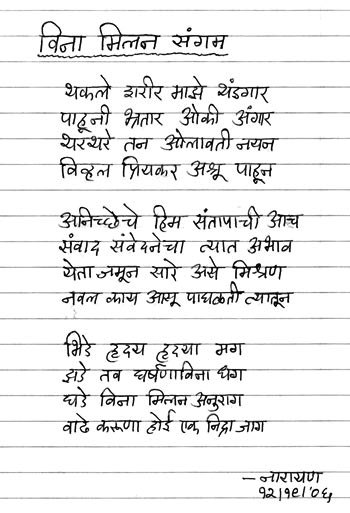 विना मिलन संगम
थकले शरीर माझे थंडगार
पाहूनी भ्रतार ओकी अंगार
थरथरे तन ओलावती नयन
विव्हल प्रियकर अश्रू पाहून
अनिच्छेचे हिम संतापाची आच
संवाद संवेदनेचा त्यात अभाव
येता जमून सारे असे मिश्रण
नवल काय आसू पाघळती त्यातून
भिडे हृदय हृदया मग
झडे तव घर्षणाविना धग
घडे विना मिलन अनुराग
वाढे करूणा होई एक निद्रा जाग
– नारायण
१२/११/'०६